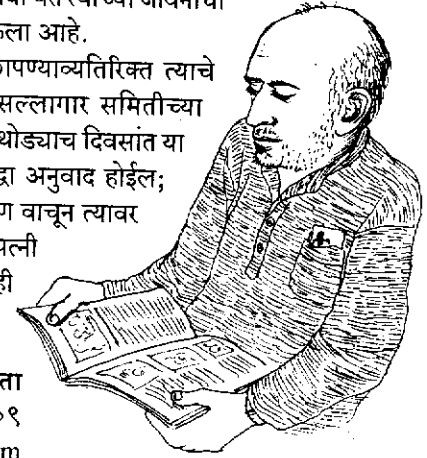 ला आहे.
ापण्याव्यतिरिक्त त्याचे
सल्लागार समितीच्या
थोड्याच दिवसांत या
द्धा अनुवाद होईल;
ण वाचून त्यावर
पत्नी
ही
ता
०९
m